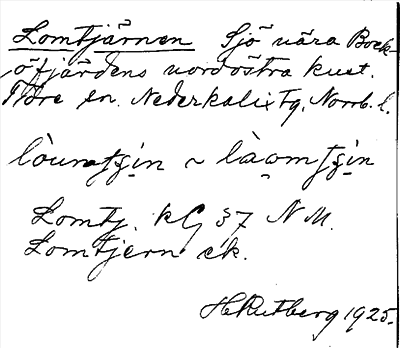 Lomtjärnen Sjö nära Bock-
öfjärdens nordöstra kust.
Töre sn. Nederkalix tg. Norrb. l.
lòum ~ làom
Lomtj. kG 37 N M.
Lomtjern ek.
H Rutberg 1925.